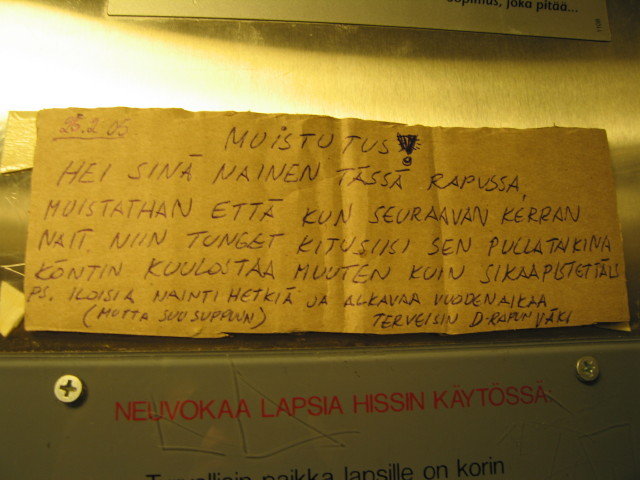 opimus, joka pitää...
1108
25.2.05
MUISTUTUS!
HEI SINÄ NAINEN TÄSSÄ RAPUSSA,
MUISTATHAN ETTÄ KUN SEURAAVAN KERRAN
NAIT, NIIN TUNGET KITUSIISI SEN PULLATAIKINA
KÖNTIN KUULOSTAA MUUTEN KUIN SIKAA PISTETTÄIS
PS. ILOISIA NAINTI HETKIÄ JA ALKAVAA VUODENAIKAA
(MUTTA SUU SUPPUUN) TERVEISIN D-RAPUN VÄKI
NEUVOKAA LAPSIA HISSIN KÄYTÖSSÄ
Turvallisin paikka lapsille on korin